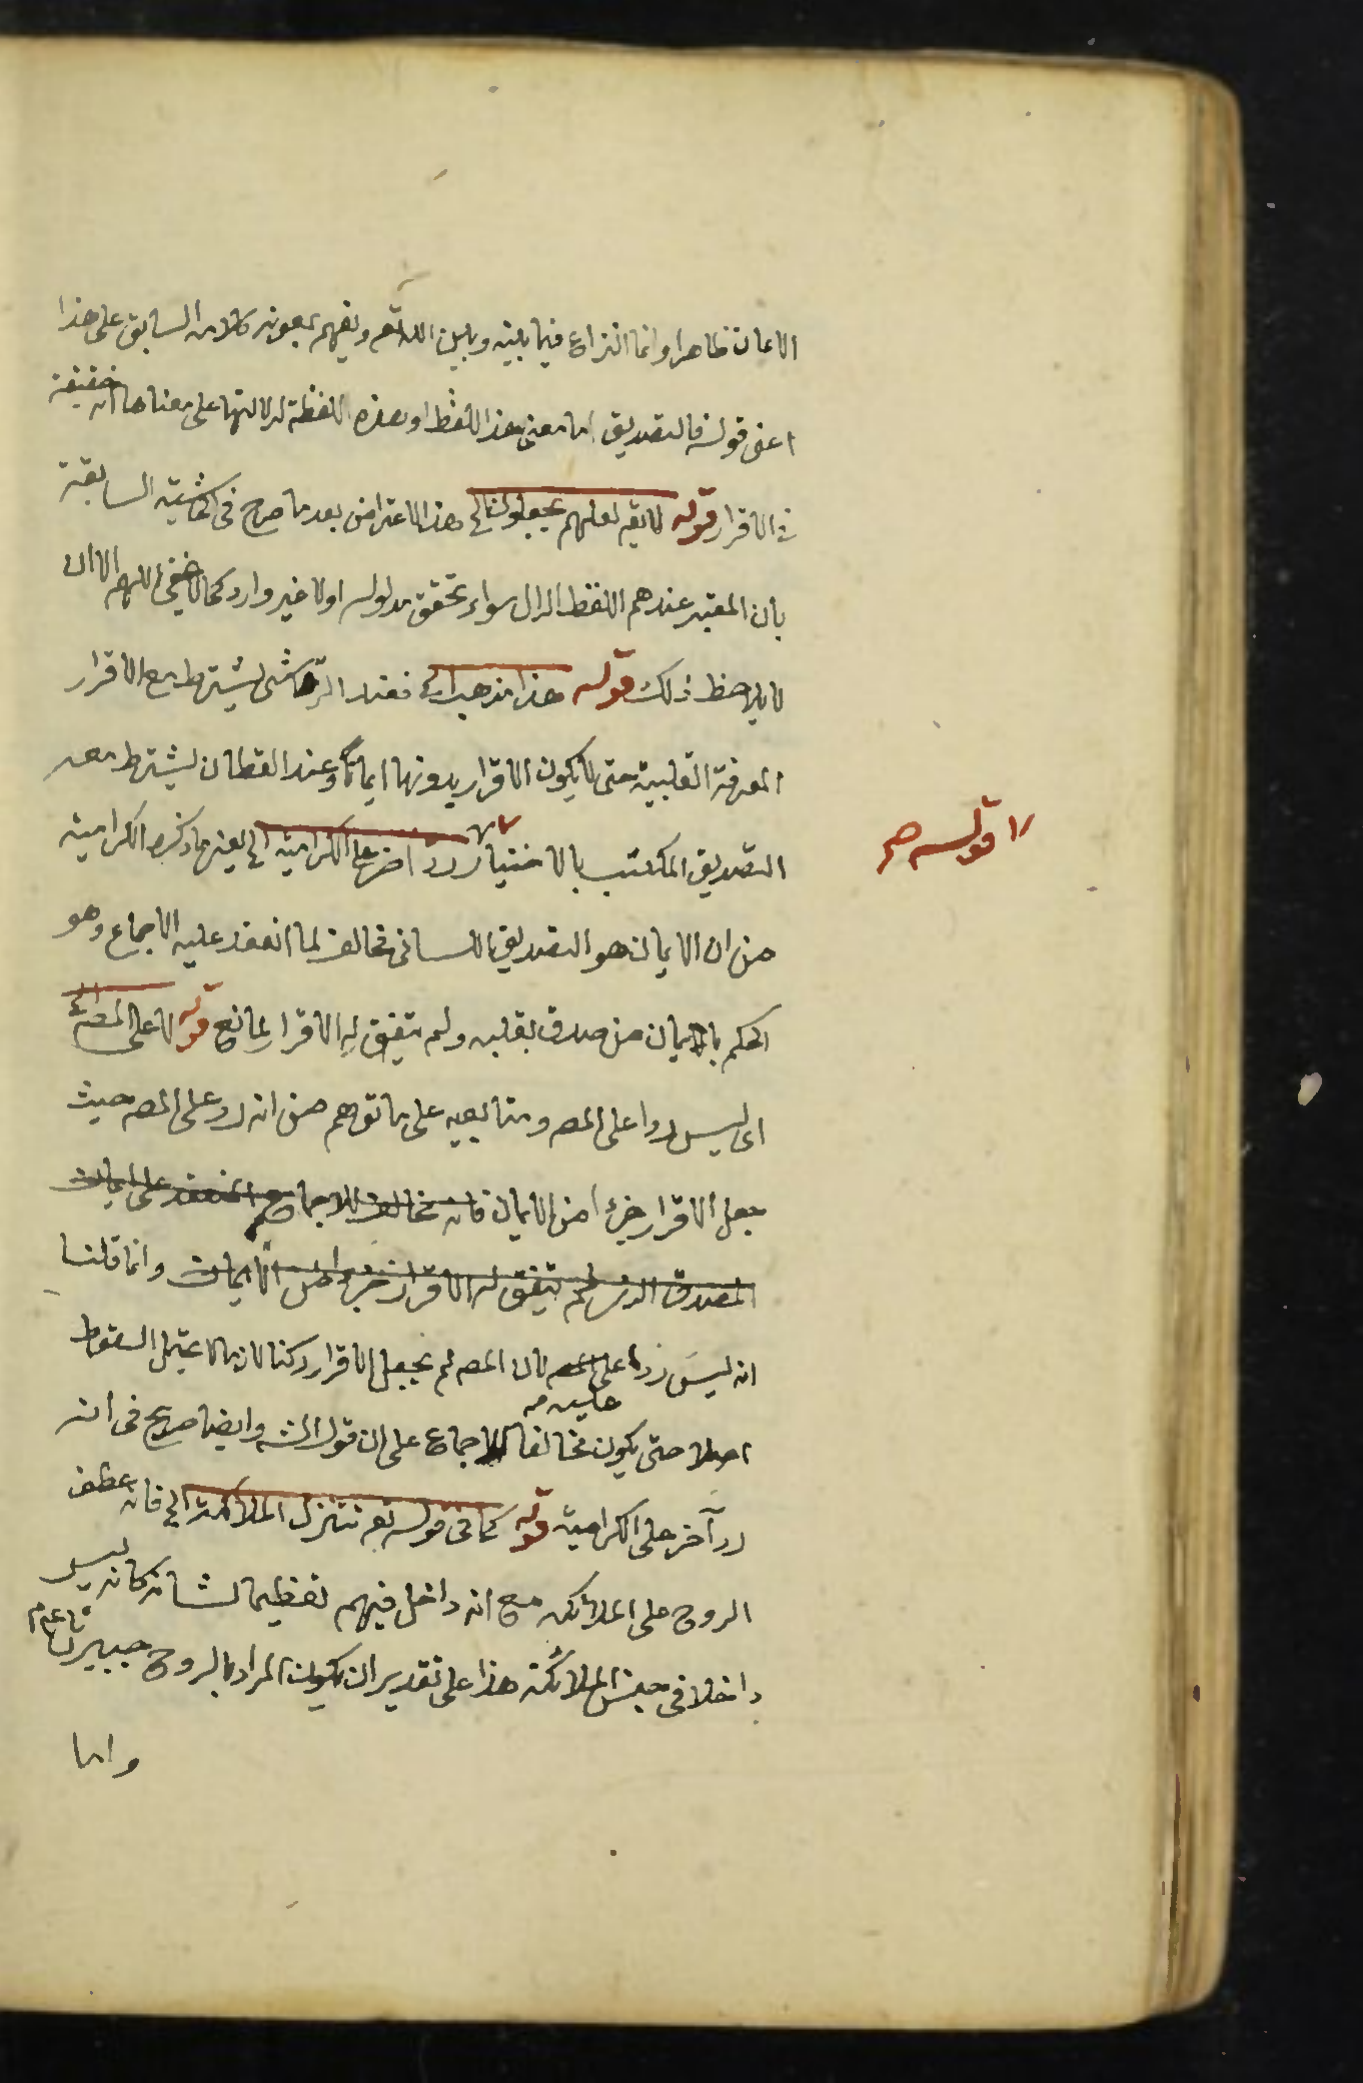 الايمان ظاهرا وانما النزاع فيما بينه وبين الله تع ويفهم بمعونة كلامه السابق على هذا
اعنى قوله فالتصديق اما معنى هذا اللفظ او هذه اللفظة لدلالتها على معناها انه حقيقة
فى الاقرار قوله لايقه لعلهم يجعلون الخ هذا الاعتراض بعد ما صرح فى الحاشية السابقة
بان المعتبر عندهم اللفظ الدال سواء تحقق مدلوله اولا غير وارد كما لا يخفى اللهم الا ان
لا يلاحظ ذلك قوله هذا مذهب الخ فعند الرقاشى يشترط مع الاقرار
المعرفة القلبية حتى لا يكون الاقرار بدونها ايمانا وعند القطان يشترط معه
التصديق المكتسب بالاختيار رد اخر على الكرامية الخ يعنى ما ذكره الكرامية
لا قوله صح
من ان الايمان هو التصديق اللسانى مخالف لما انعقد عليه الاجماع وهو
الحكم بايمان من صدق بقلبه ولم يتفق له الاقرار لمانع قوله لا على المص الخ
اى ليس ردا على المص ومتابعيه على ما توهم من انه رد على المص حيث
جعل الاقرار جزءا من الايمان فانه مخالف للاجماع المنعقد على ايمان
المصدق الذى لم يتفق له الاقرار جزءا من الايمان وانما قلنا
انه ليس ردا على المص لان المص لم يجعل الاقرار ركنا لازما لا يحتمل السقوط
عليه صح
اصلا حتى يكون مخالفا للاجماع على ان قول الشه وايضا صريح فى انه
رد آخر على الكرامية قوله كما فى قوله تع تنزل الملائكة الخ فانه عطف
الروح على الملائكة مع انه داخل فيهم تعظيما لشانه كانه ليس
داخلا فى جنس الملائكة هذا على تقدير ان يكون المراد بالروح جبيرئل عم
واما